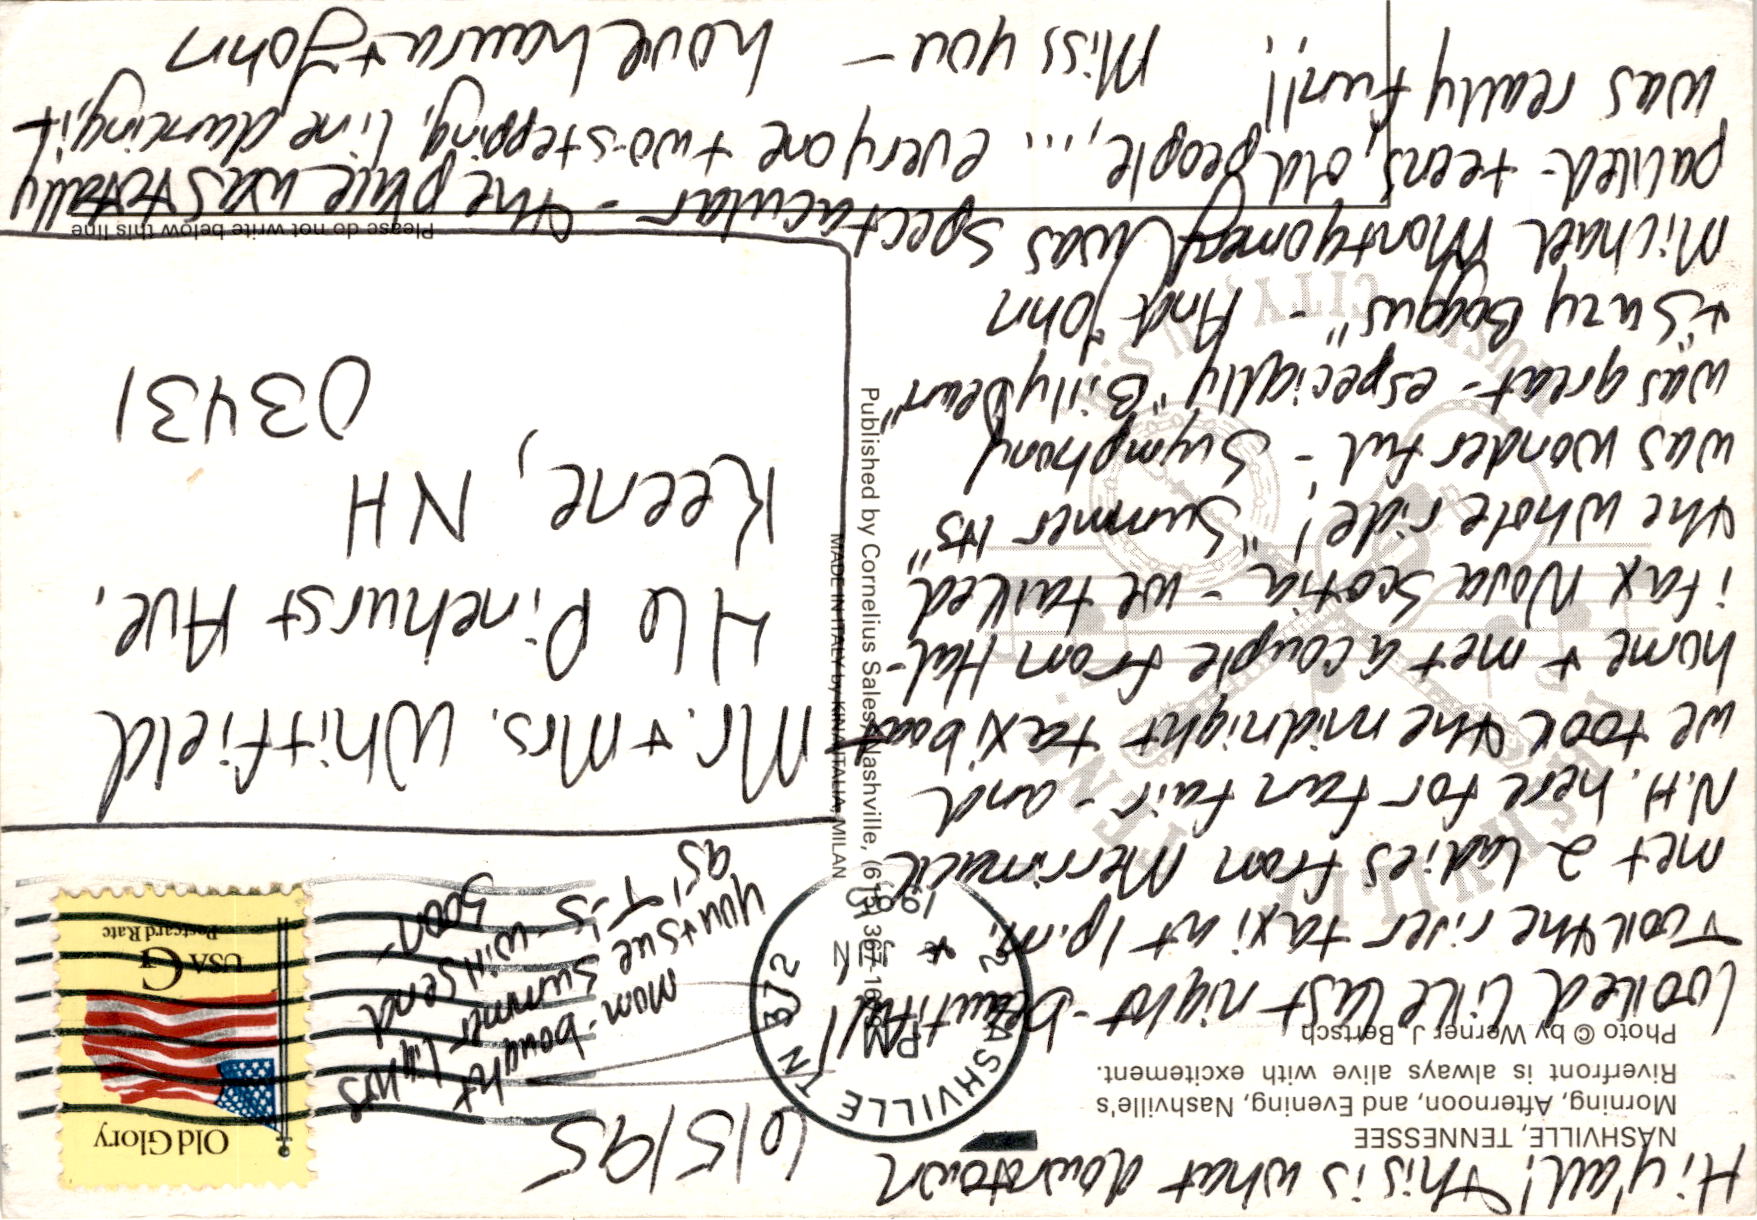 Hi y'all! This is what downtown
NASHVILLE, TENNESSEE
Morning, Afternoon, and Evening, Nashville's
Riverfront is always alive with excitement.
Photo © by Werner J. Bertsch
looked like last night - beautiful!
Took the river taxi at 1p.m. +
met 2 ladies from Merrimack
N.H. here for fan fair - and
we took the midnight taxi boat
home + met a couple from Hal-
ifax Nova Scotia - we talked
the whole ride! "Summer Its"
was wonderful - Symphony
was great - especially "Billy Dean"
+ "Suzy Boggus" - And John
Michael Montgomery was spectacular - the place was totally
packed - teens, old people, ... everyone two-stepping, line dancing, it
was really fun!! Miss you - Love Laura + John
6/5/95
Mom - bought Lynn's
you + Sue Summer
as, T-S - will send
soon -
NASHVILLE TN 372
PM
5 JUN
1995
Old Glory
USA G
Postcard Rate
Published by Cornelius Sales, Nashville,
MADE IN ITALY by KINA ITALIA-MILAN
Mr. + Mrs. Whitfield
46 Pinehurst Ave.
Keene, NH
03431
Please do not write below this line
NASHVILLE
TENNESSEE
MUSIC CITY, U.S.A.